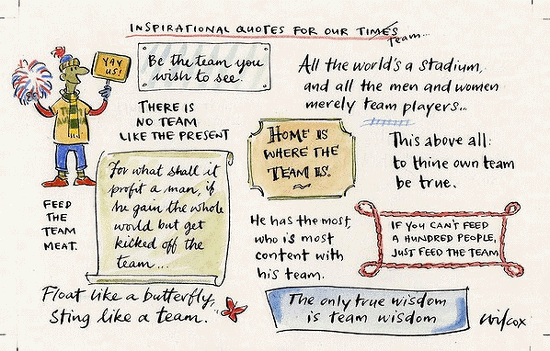 INSPIRATIONAL QUOTES FOR OUR TIMES
Team...
YAY
US!
Be the team you
wish to see.
THERE IS
NO TEAM
LIKE THE PRESENT
All the world's a stadium,
and all the men and women
merely team players...
HOME IS
WHERE THE
TEAM IS.
This above all:
to thine own team
be true.
FEED
THE
TEAM
MEAT.
For what shall it
profit a man, if
he gain the whole
world but get
kicked off the
team...
He has the most,
who is most
content with
his team.
IF YOU CAN'T FEED
A HUNDRED PEOPLE,
JUST FEED THE TEAM
Float like a butterfly,
Sting like a team.
The only true wisdom
is team wisdom
Wilcox